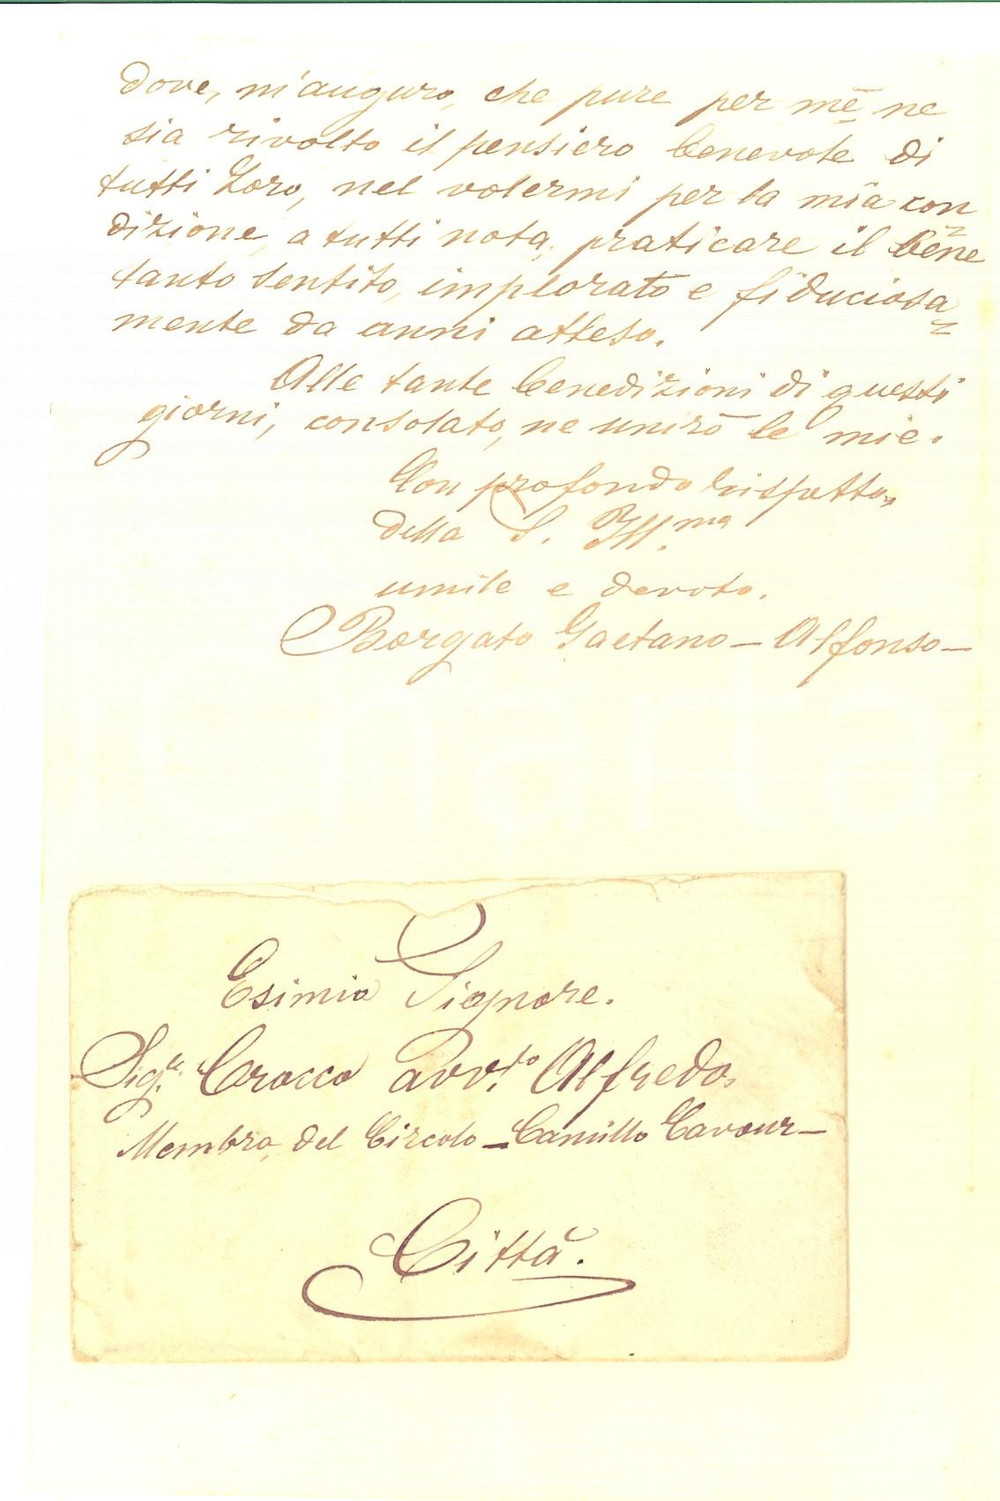 dove, m'auguro, che pure per me ne
sia rivolto il pensiero benevole di
tutti Loro, nel volermi per la mia con
dizione, a tutti nota, praticare il bene
tanto sentito, implorato e fiduciosa=
mente da anni atteso.
Alle tante benedizioni di questi
giorni, consolato, ne unirò le mie.
Con profondo rispetto,
della S. Ill.ma
umile e devoto.
Borgato Gaetano - Alfonso -
Charta
Esimio Signore.
Sig.r Crocco avv.to Alfredo,
Membro, del Circolo - Camillo Cavour -
Città.